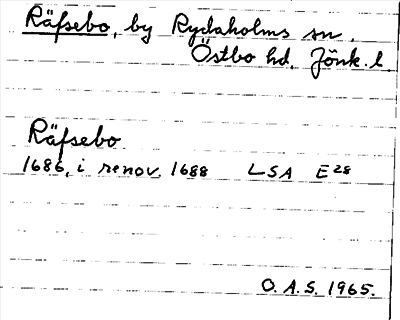 Räfsebo, by Rydaholms sn.
Östbo hd. Jönk. l.
Räfsebo
1686, i renov. 1688 LSA E28
O.A.S. 1965.